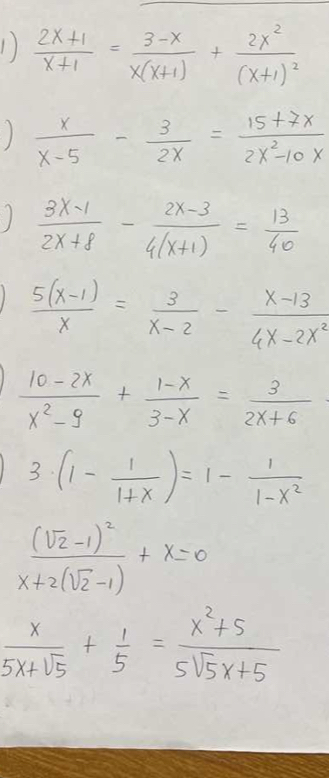 1) (2x+1)/(x+1) = (3-x)/(x(x+1)) + 2x²/(x+1)²
) x/(x-5) - 3/(2x) = (15+7x)/(2x²-10x)
) (3x-1)/(2x+8) - (2x-3)/(4(x+1)) = 13/40
) 5(x-1)/x = 3/(x-2) - (x-13)/(4x-2x²)
) (10-2x)/(x²-9) + (1-x)/(3-x) = 3/(2x+6) -
) 3·(1 - 1/(1+x)) = 1 - 1/(1-x²)
(√2-1)²/(x+2(√2-1)) + x=0
x/(5x+√5) + 1/5 = (x²+5)/(5√5x+5)